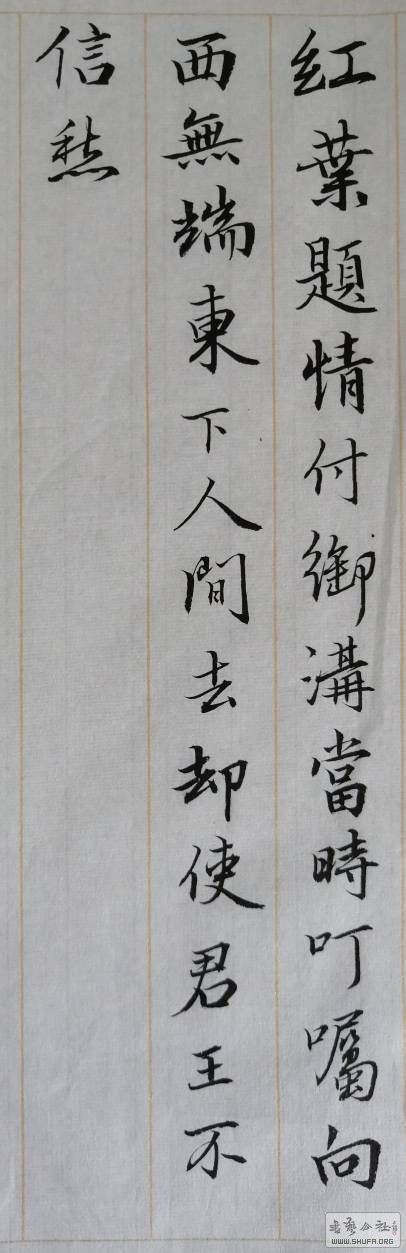 紅葉題情付御溝當時叮囑向
西無端東下人間去却使君王不
信愁
書藝公社
WWW.SHUFA.ORG